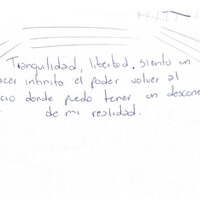 Tranquilidad, libertad, siento un
acer infinito el poder volver al
cio donde puedo tener un descone
de mi realidad.